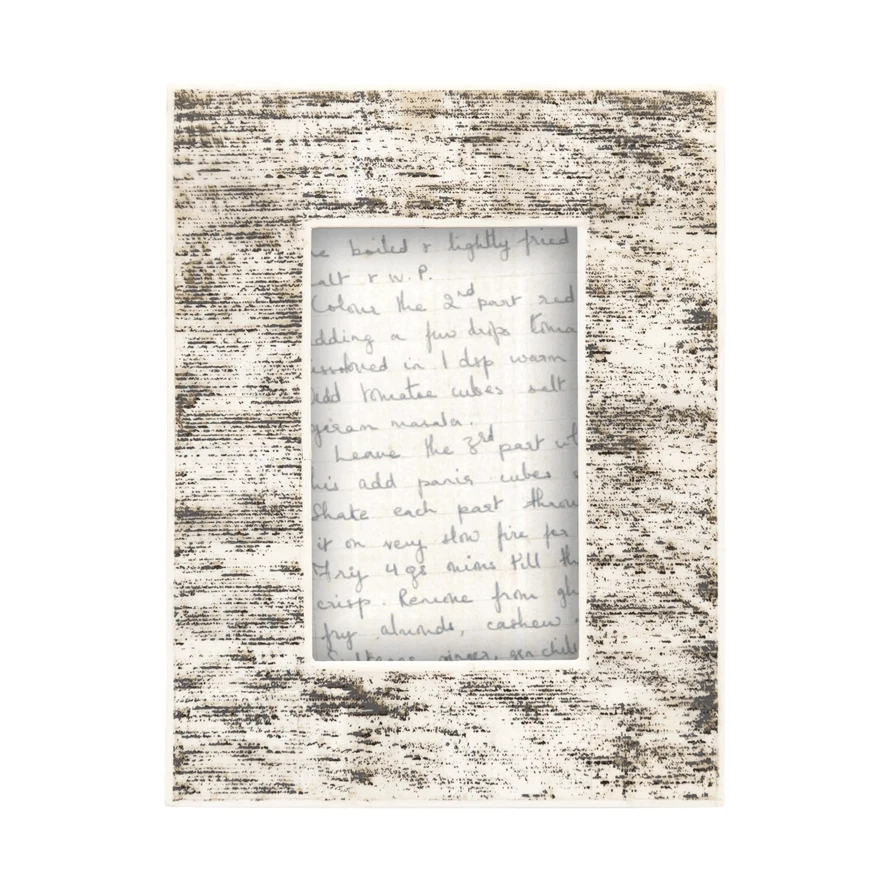 boiled & lightly fried
alt & w. P.
Colour the 2nd part red
dding a few drops toma
issolved in 1 dsp warm
Add tomatoe cubes salt
garam masala.
Leave the 3rd part
his add panir cubes
Shake each part throu
it on very slow fire for
Fry 4 gs onions till th
crisp. Remove from gh
fry almonds, cashew
ginger, grn chil